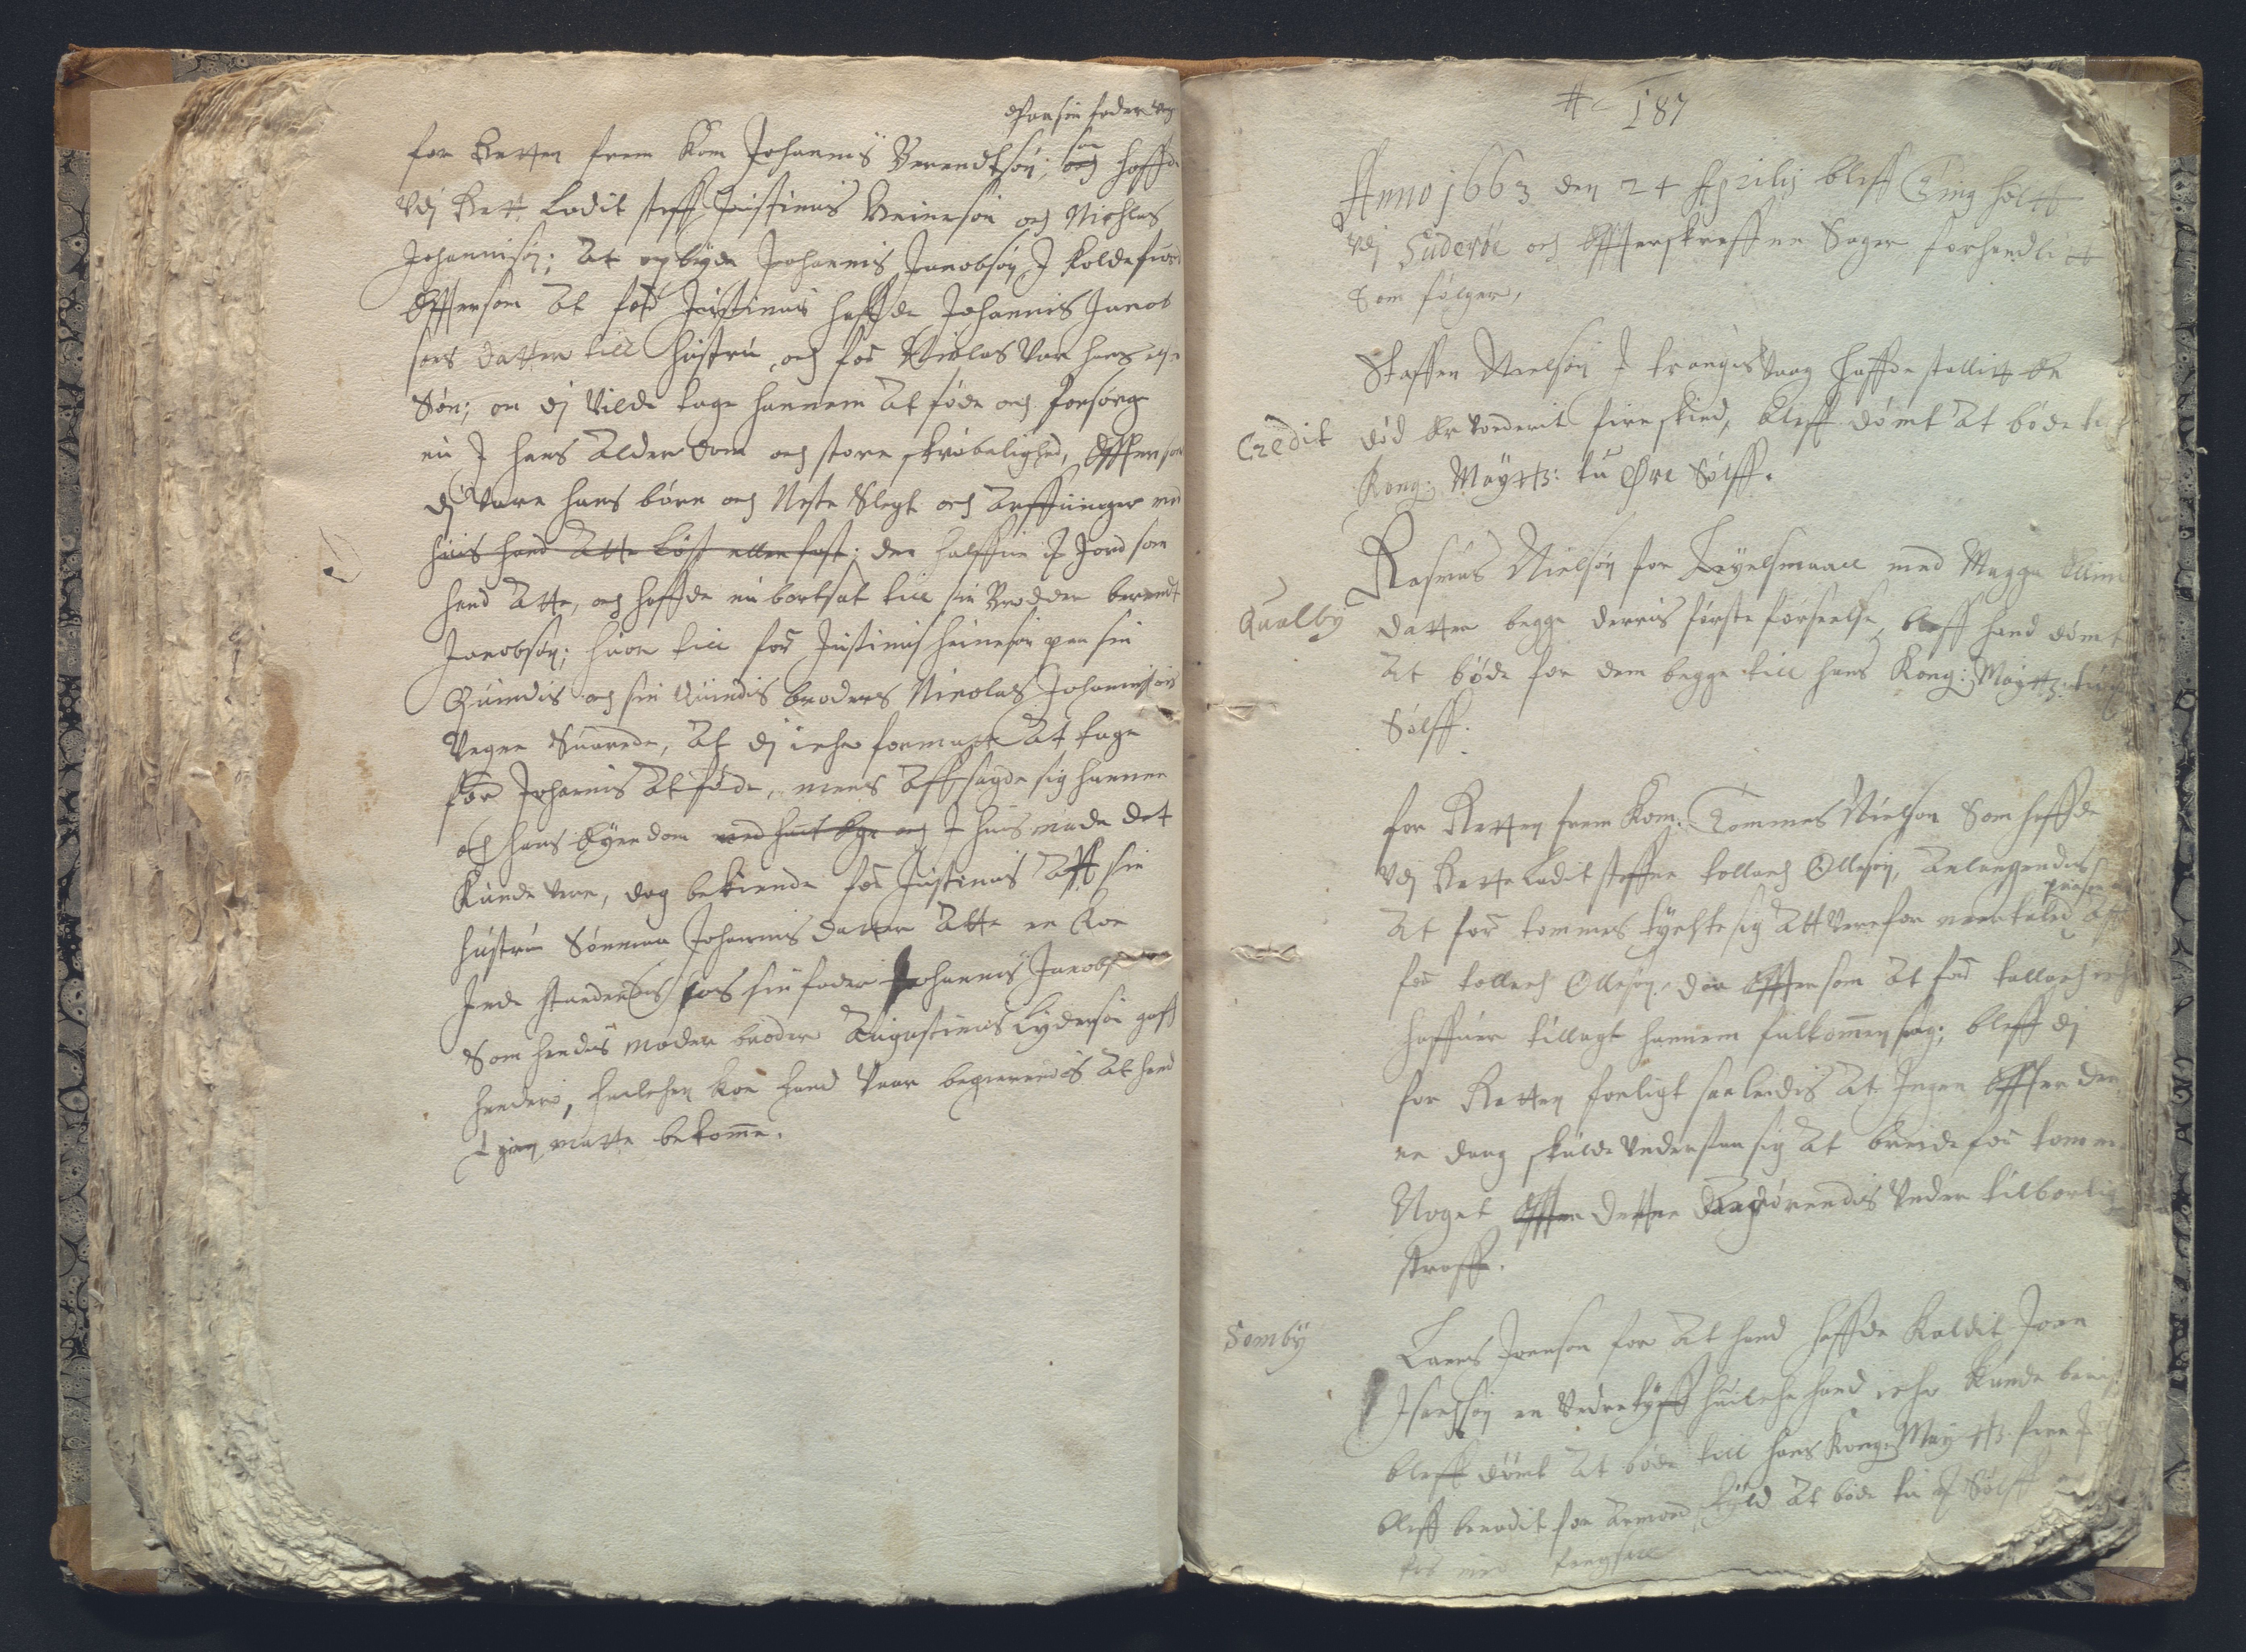 paa sin faders veg
for Retten frem kom Johannis Berendtsøn, som haffde
vdj Rett ladit steff Justinus Heinesøn och Nichlas
Johannisøn; at opbyde Johannis Jacobsøn J Koldefiord
Effterson atford Justinus haffde Johannis Jacob
søns datter till hustru, och ford Nicolas var hans
Søn; om dj vilde tage hannem at føde och forsørge
nu J hans alderdom och store skrøbelighed, Effterson
dj vare hans børn och Neste Slegt och arffuinger med
huis hand atte løst eller fast; der halffue Jord som
hand atte, och haffde nu bortsat till sin Brodder berendt
Jacobsøn; huor till ford Justinus heinesøn paa sin
Quindis och sin Quindis broders Nicolas Johannisøns
vegne Suarede, at dj icke formaatte at tage
ford Johannis at føde, mens affsagde sig hannem
och hans Eyendom J huis maade det
kunde vere, dog bekiende ford Justinus at sin
hustru Sønneua Johannis datter atte en koe
Inde staaendis hos sin fader Johannis Jacobsøn
Som hendis moder broder Augustinus Lydersøn gaff
hender, huilchen koe hand vaar begierendis at hand
igien matte bekomme.
187
Anno 1663 den 24 Aprilis bleff Ting holtt
vdj Suderöe och Effterskreffne Sager forhandlitt
som følger,
Staffen Nielsøn J trangisvaag haffde stallitt
Credit
død vorderit fire skind, bleff dømt at bøde
Kong: Maytts: tu Øre Sølff.
Rasmus Nielsøn for Leyelsmaall med Magga
Qualby
datter begge derris første forseelse, bleff hand dømt
at bøde for dem begge till hans Kong: Maytts:
Sølff.
for Retten frem kom. Tommes Nielsøn Som haffde
vdj Rette ladit steffne tollach Ollesøn, anlangendis
at ford tommes tychte sig att vere for
ford tollach Ollesøn, der Effterson at ford tollach
haffuer tillagt hannem fulkommen sag; bleff dj
for Retten forligt saaledis at Ingen Effter den
ne dag skulde vnderstaa sig at breide ford tommes
Noget Effter dette vnder tilbørlig
straffe.
Somby
Laers Joensøn for at hand haffde kaldit Joen
Isachsøn en huilche hand icke kunde
bleff dømt at bøde till hans Kong: Maytts:
bleff benadit for armod skyld at bøde tu Sølff